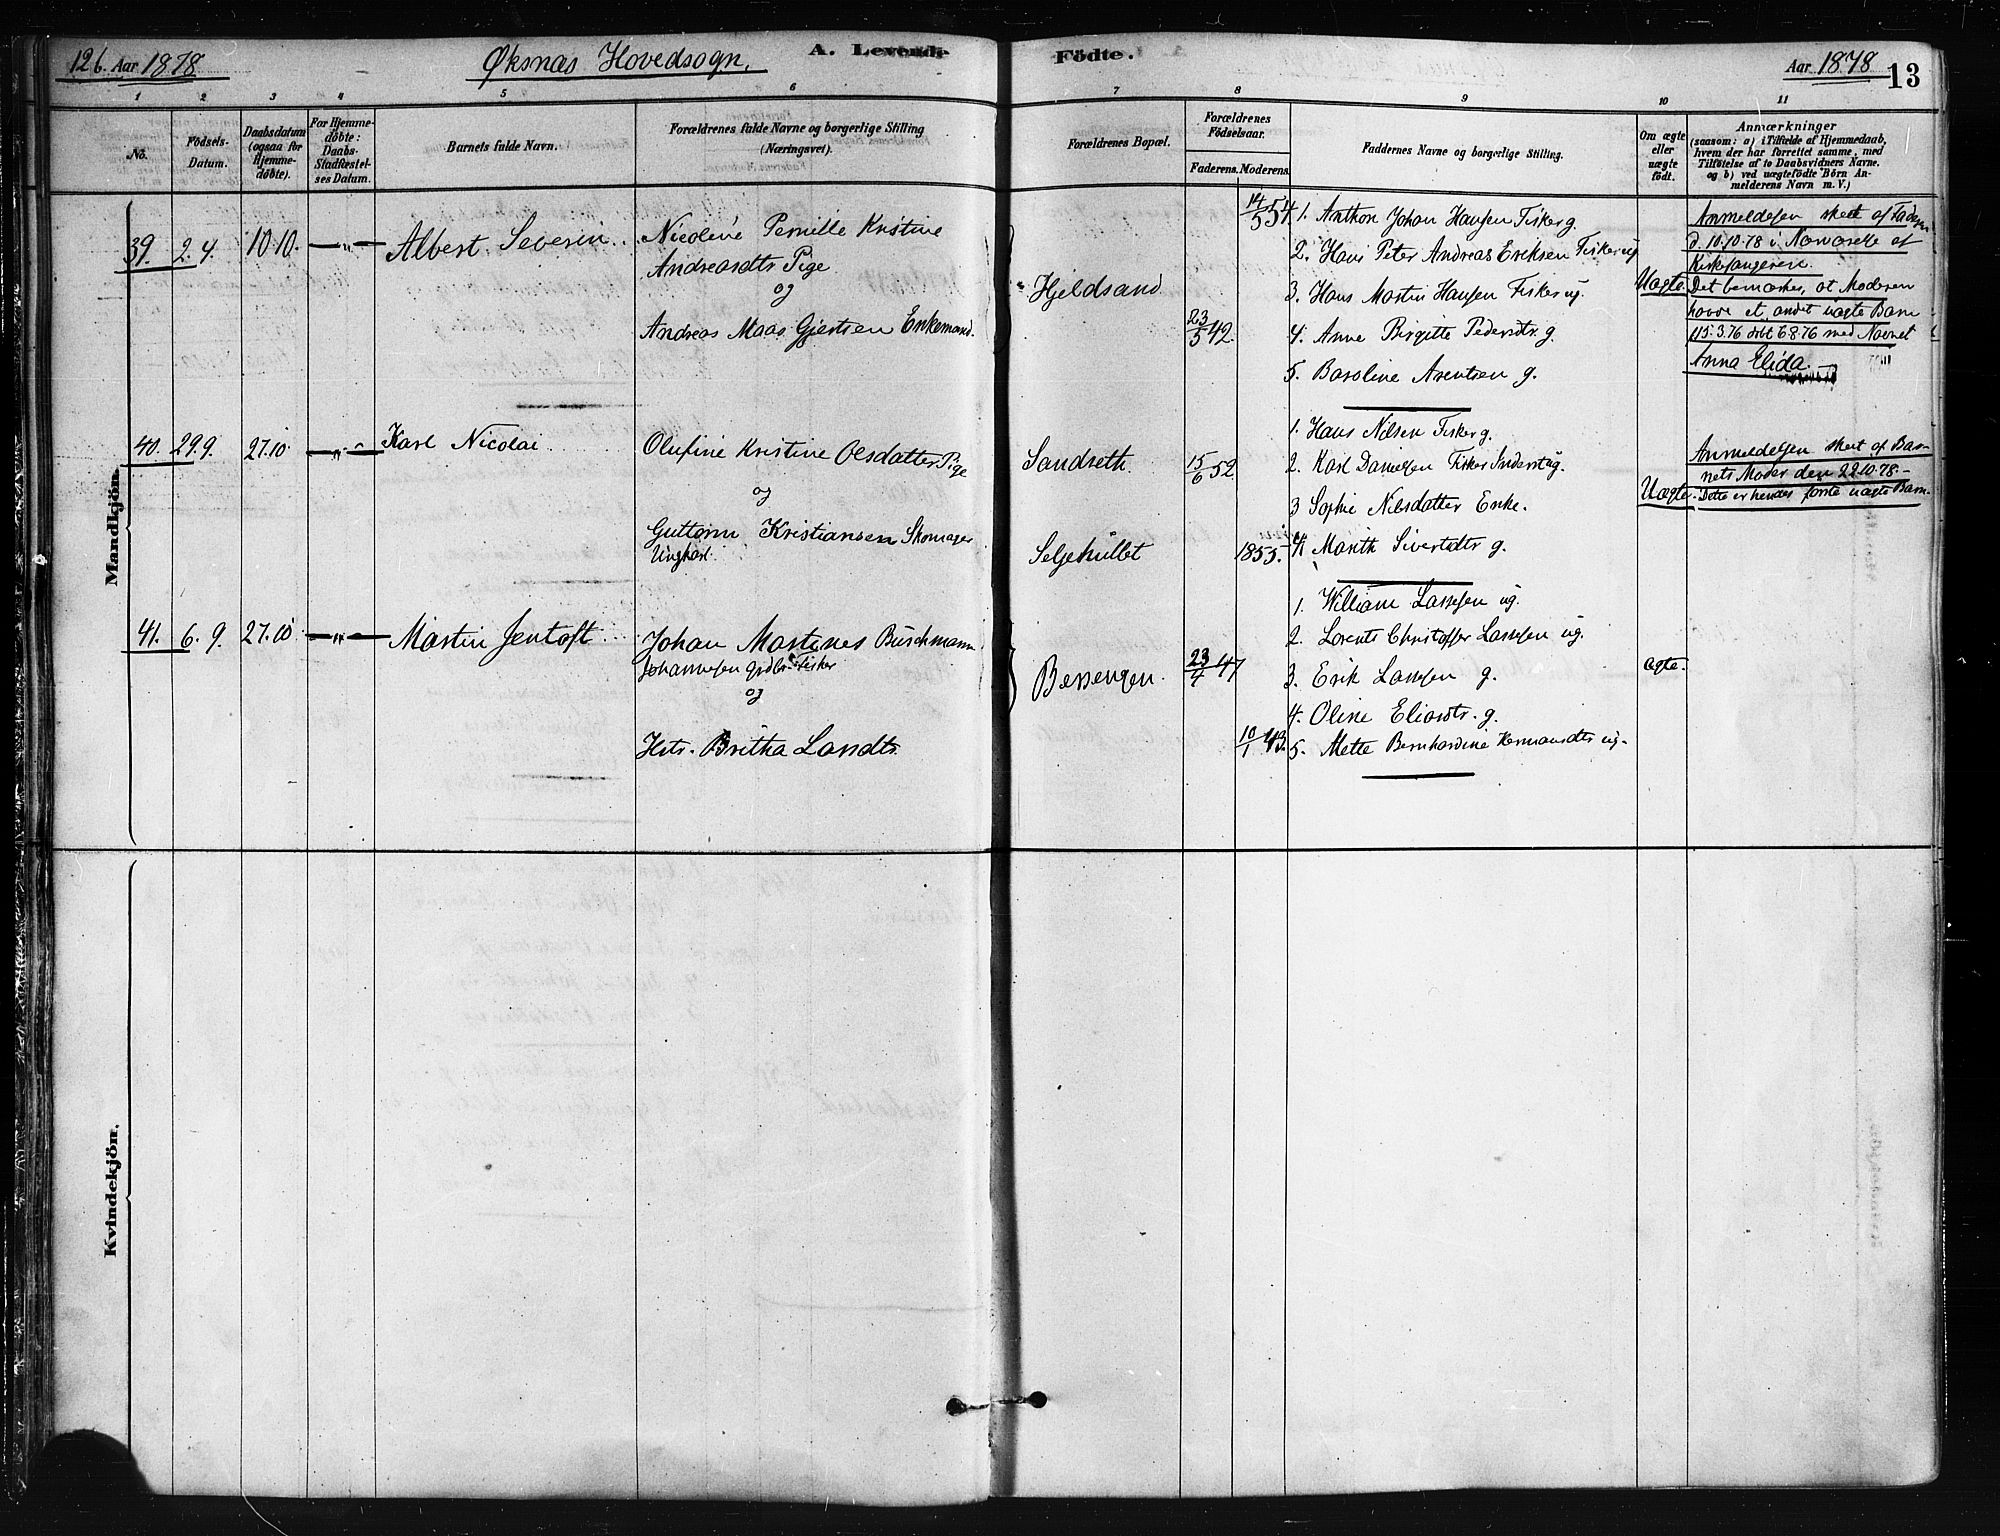 12b. Aar 1878
Øksnæs Hovedsogn.
A. Levende
Födte.
Aar 1878
13
1 2 3 4 5 6 7 8 9 10 11
No.
Födsels-
Datum.
Daabsdatum
(ogsaa for
Hjemme-
döbte).
For Hjemme-
döbte:
Daabs-
Stadfæstel-
ses Datum.
Barnets fulde Navn.
Forældrenes fulde Navne og borgerlige Stilling
(Næringsvei).
Forældrenes Bopæl.
Forældrenes
Födselsaar.
Faderens. Moderens.
Faddernes Navne og borgerlige Stilling.
Om ægte
eller
uægte
födt.
Anmærkninger
(saasom: a) i Tilfælde af Hjemmedaab,
hvem der har forrettet samme, med
Tilföielse af to Daabsvidners Navne,
og b) ved uægtefödte Börn An-
melderens Navn m. V.)
Mandkjön.
39. 2.4. 10.10. —"— Albert Severin
Nicoline Pernille Kristine
Andreasdtr Pige
og
Andreas Maas Gjertsen Enkemand.
Hjeldsand
14/5 54
23/5 42.
1. Anthon Johan Hansen Fisker g.
2. Hans Peter Andreas Eriksen Fisker ug
3. Hans Martin Hansen Fisker ug.
4. Anne Birgitte Pedersdtr g.
5. Baroline Arentsen g.
Uægte
Anmeldelsen skeet af Faderen
d. 10.10.78 i Nærværelse af
Kirkesangeren.
Det bemærkes, at Moderen
havde et andet uægte Barn
f 15.3.76 døbt 6.8.76 med Navnet
Anna Elida.
40. 29.9. 27.10. —"— Karl Nicolai
Olufine Kristine Olsdatter Pige
og
Guttorm Kristiansen Skomager
Ungkarl.
Sandseth.
Seljehullet
15/6 52.
1855.
1. Hans Nilsen Fisker g.
2. Karl Danielsen Fisker Inderst ug.
3 Sophie Nilsdatter Enke.
4. Marith Sivertdtr g.
Uægte.
Anmeldelsen skeet af Bar-
nets Moder den 22.10.78.
Dette er hendes første uægte Barn.
41. 6.9. 27.10 —"— Martin Jentoft
Johan Martines Buschmann
Johannesen Fisker
og
Hstr. Britha Landtr.
Bessengen.
23/4 47
10/1 43.
1. William Lassesen ug.
2. Lorents Christoffer Lassesen ug.
3. Erik Lassesen g.
4. Oline Eliasdtr. g.
5. Mette Bernhardine Hermansdtr ug.
ægte.
Kvindekjön.